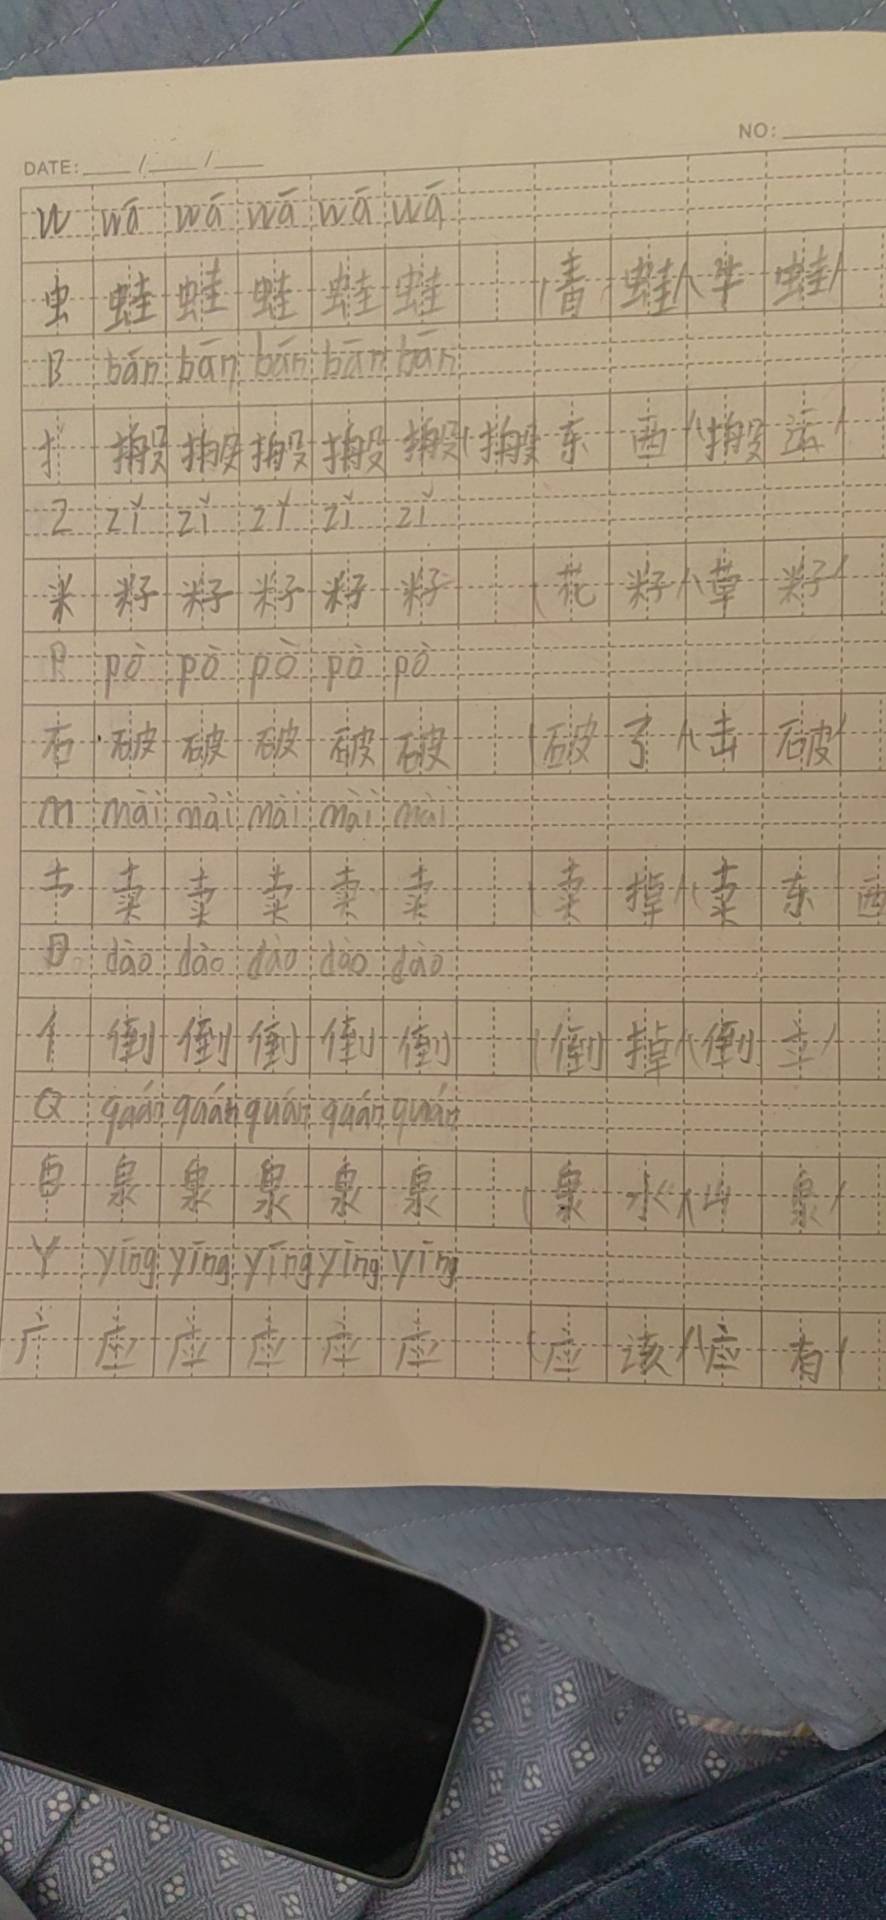 NO:
DATE: / /
W wā wā wā wā wā
虫 蛙 蛙 蛙 蛙 蛙 (青蛙)(牛蛙)
B bān bān bān bān bān
扌 搬 搬 搬 搬 搬 (搬东西)(搬运)
Z zǐ zǐ zǐ zǐ zǐ
米 籽 籽 籽 籽 籽 (花籽)(草籽)
P pò pò pò pò pò
石 破 破 破 破 破 (破了)(击破)
M mài mài mài mài mài
士 卖 卖 卖 卖 卖 (卖掉)(卖东西
D dào dào dào dào dào
亻 倒 倒 倒 倒 倒 (倒掉)(倒立)
Q quán quán quán quán quán
白 泉 泉 泉 泉 泉 (泉水)(山泉)
Y yīng yīng yīng yīng yīng
广 应 应 应 应 应 (应该)(应有)